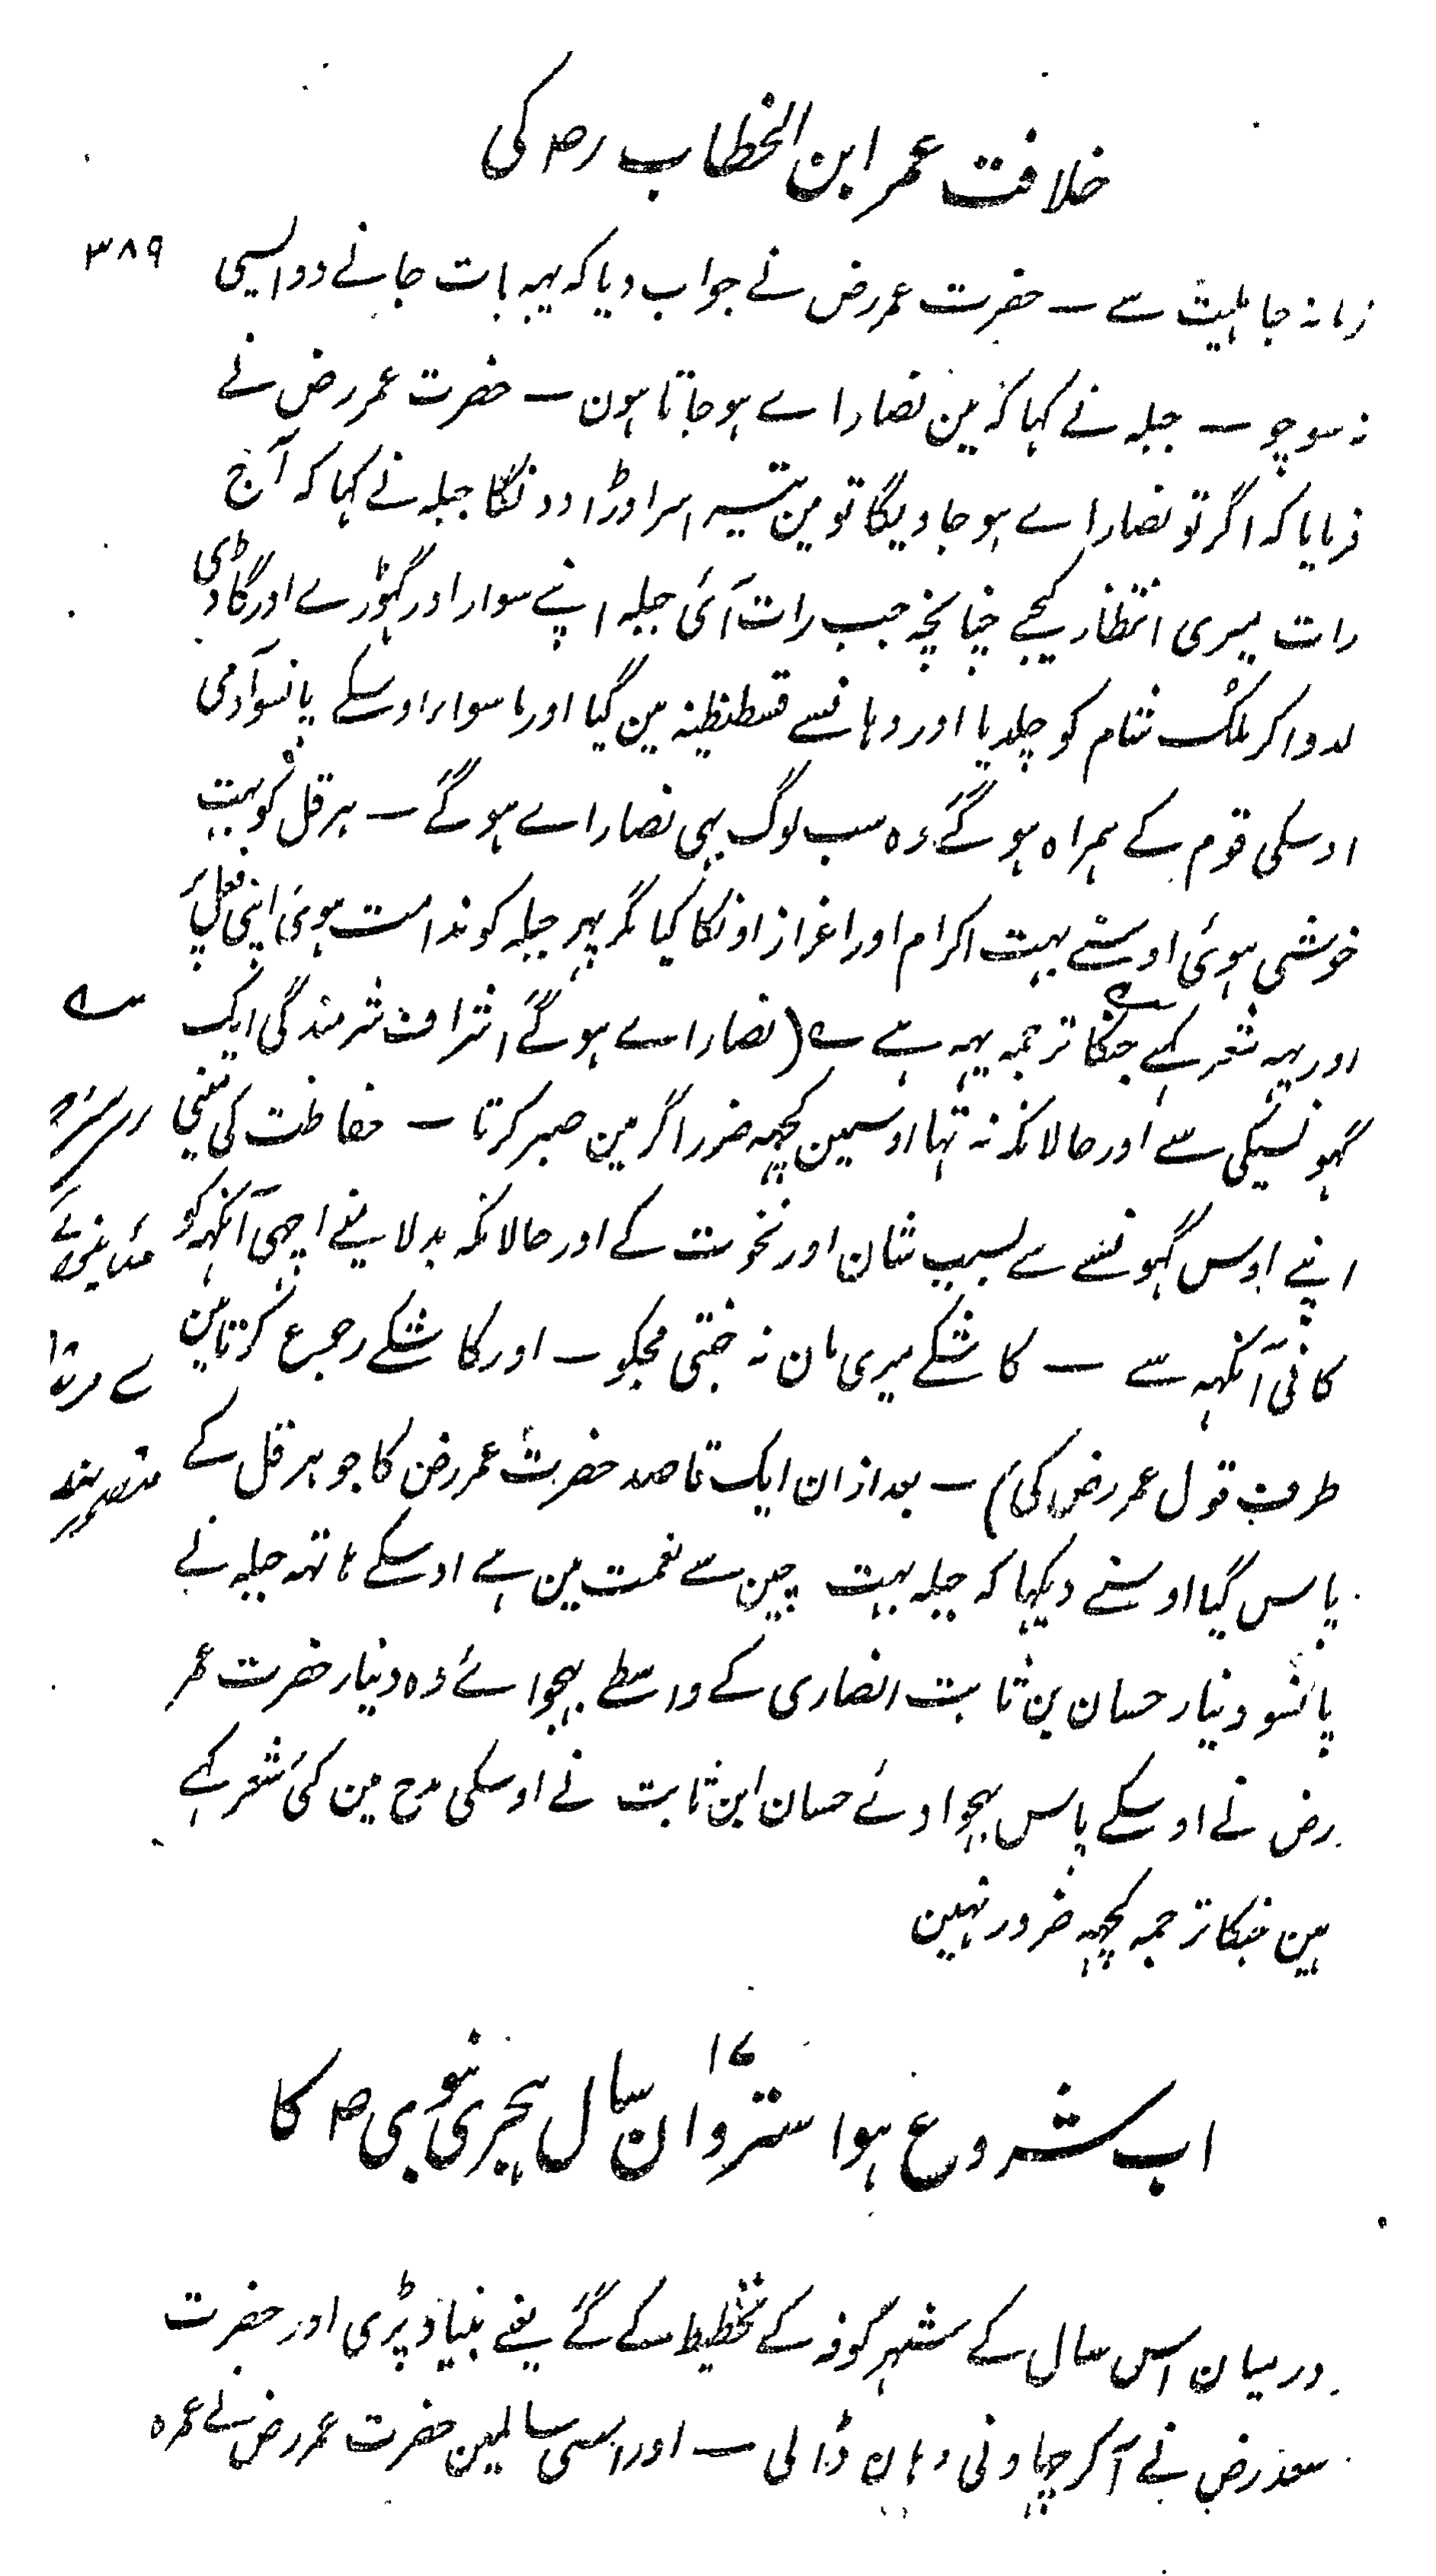 خلافت عمر ابن الخطاب رض کی
۳۸۹
زمانہ جاہلیت سے — حضرت عمر رض نے جواب دیا کہ یہہ بات جانے دو ایسی
نہ سوچو — جبلہ نے کہا کہ مین نصارا ے ہو جاتا ہون — حضرت عمر رض نے
فرمایا کہ اگر تو نصارا ے ہو جاویگا تو مین تیسرا سر اوڑا دونگا جبلہ نے کہا کہ آج
رات میری انتظار کیجے چنانچہ جب رات آئی جبلہ اپنے سوار اور گہوڑے اور گاڈی
لدوا کر ملک شام کو چلدیا اور وہانسے قسطنطینہ مین گیا اور ماسوار اوسکے پانسو آدمی
اوسکی قوم کے ہمراہ ہو گے وہ سب لوگ بہی نصارا ے ہو گے — ہرقل کو بہت
خوشی ہوئی اوسنے بہت اکرام اور اعزاز اونکا کیا مگر پہر جبلہ کو ندامت ہوئی اپنی فعل پر
اور یہہ شعر کہے جنکا ترجمہ یہہ ہے ے (نصارا ے ہو گے اشراف شرمندگی ایک
گہونسیکی سے اور حالانکہ نہ تہا اوسمین کچہہ ضرر اگر مین صبر کرتا — حفاظت کی مینے
اپنے اوس گہونسے سے بسبب شان اور نخوت کے اور حالانکہ بدلا مینے اچہی آنکہہ کو
کانی آنکہہ سے — کاشکے میری مان نہ جنتی مجکو — اور کاشکے رجوع کرتا مین
طرف قول عمر رض کی) — بعد ازان ایک قاصد حضرت عمر رض کا جو ہرقل کے
پاس گیا اوسنے دیکہا کہ جبلہ بہت چین سے نعمت مین ہے اوسکے ہاتہہ جبلہ نے
پانسو دینار حسان بن ثابت انصاری کے واسطے بہجوائے وہ دینار حضرت عمر
رض نے اوسکے پاس بہجوا دئے حسان ابن ثابت نے اوسکی مدح مین کئی شعر کہے
ہین جنکا ترجمہ کچہہ ضرور نہین
۱۷
اب شروع ہوا سترواں سال ہجری نبوی ص کا
درمیان اس سال کے شہر کوفہ کے تخطیط کے گے یعنے بنیاد پڑی اور حضرت
سعد رض نے آ کر چہاونی وہان ڈالی — اور اسی سالمین حضرت عمر رض نے عمرہ